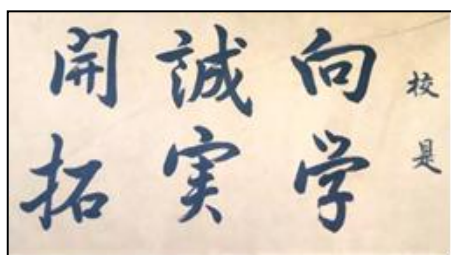 校是
向学
誠実
開拓